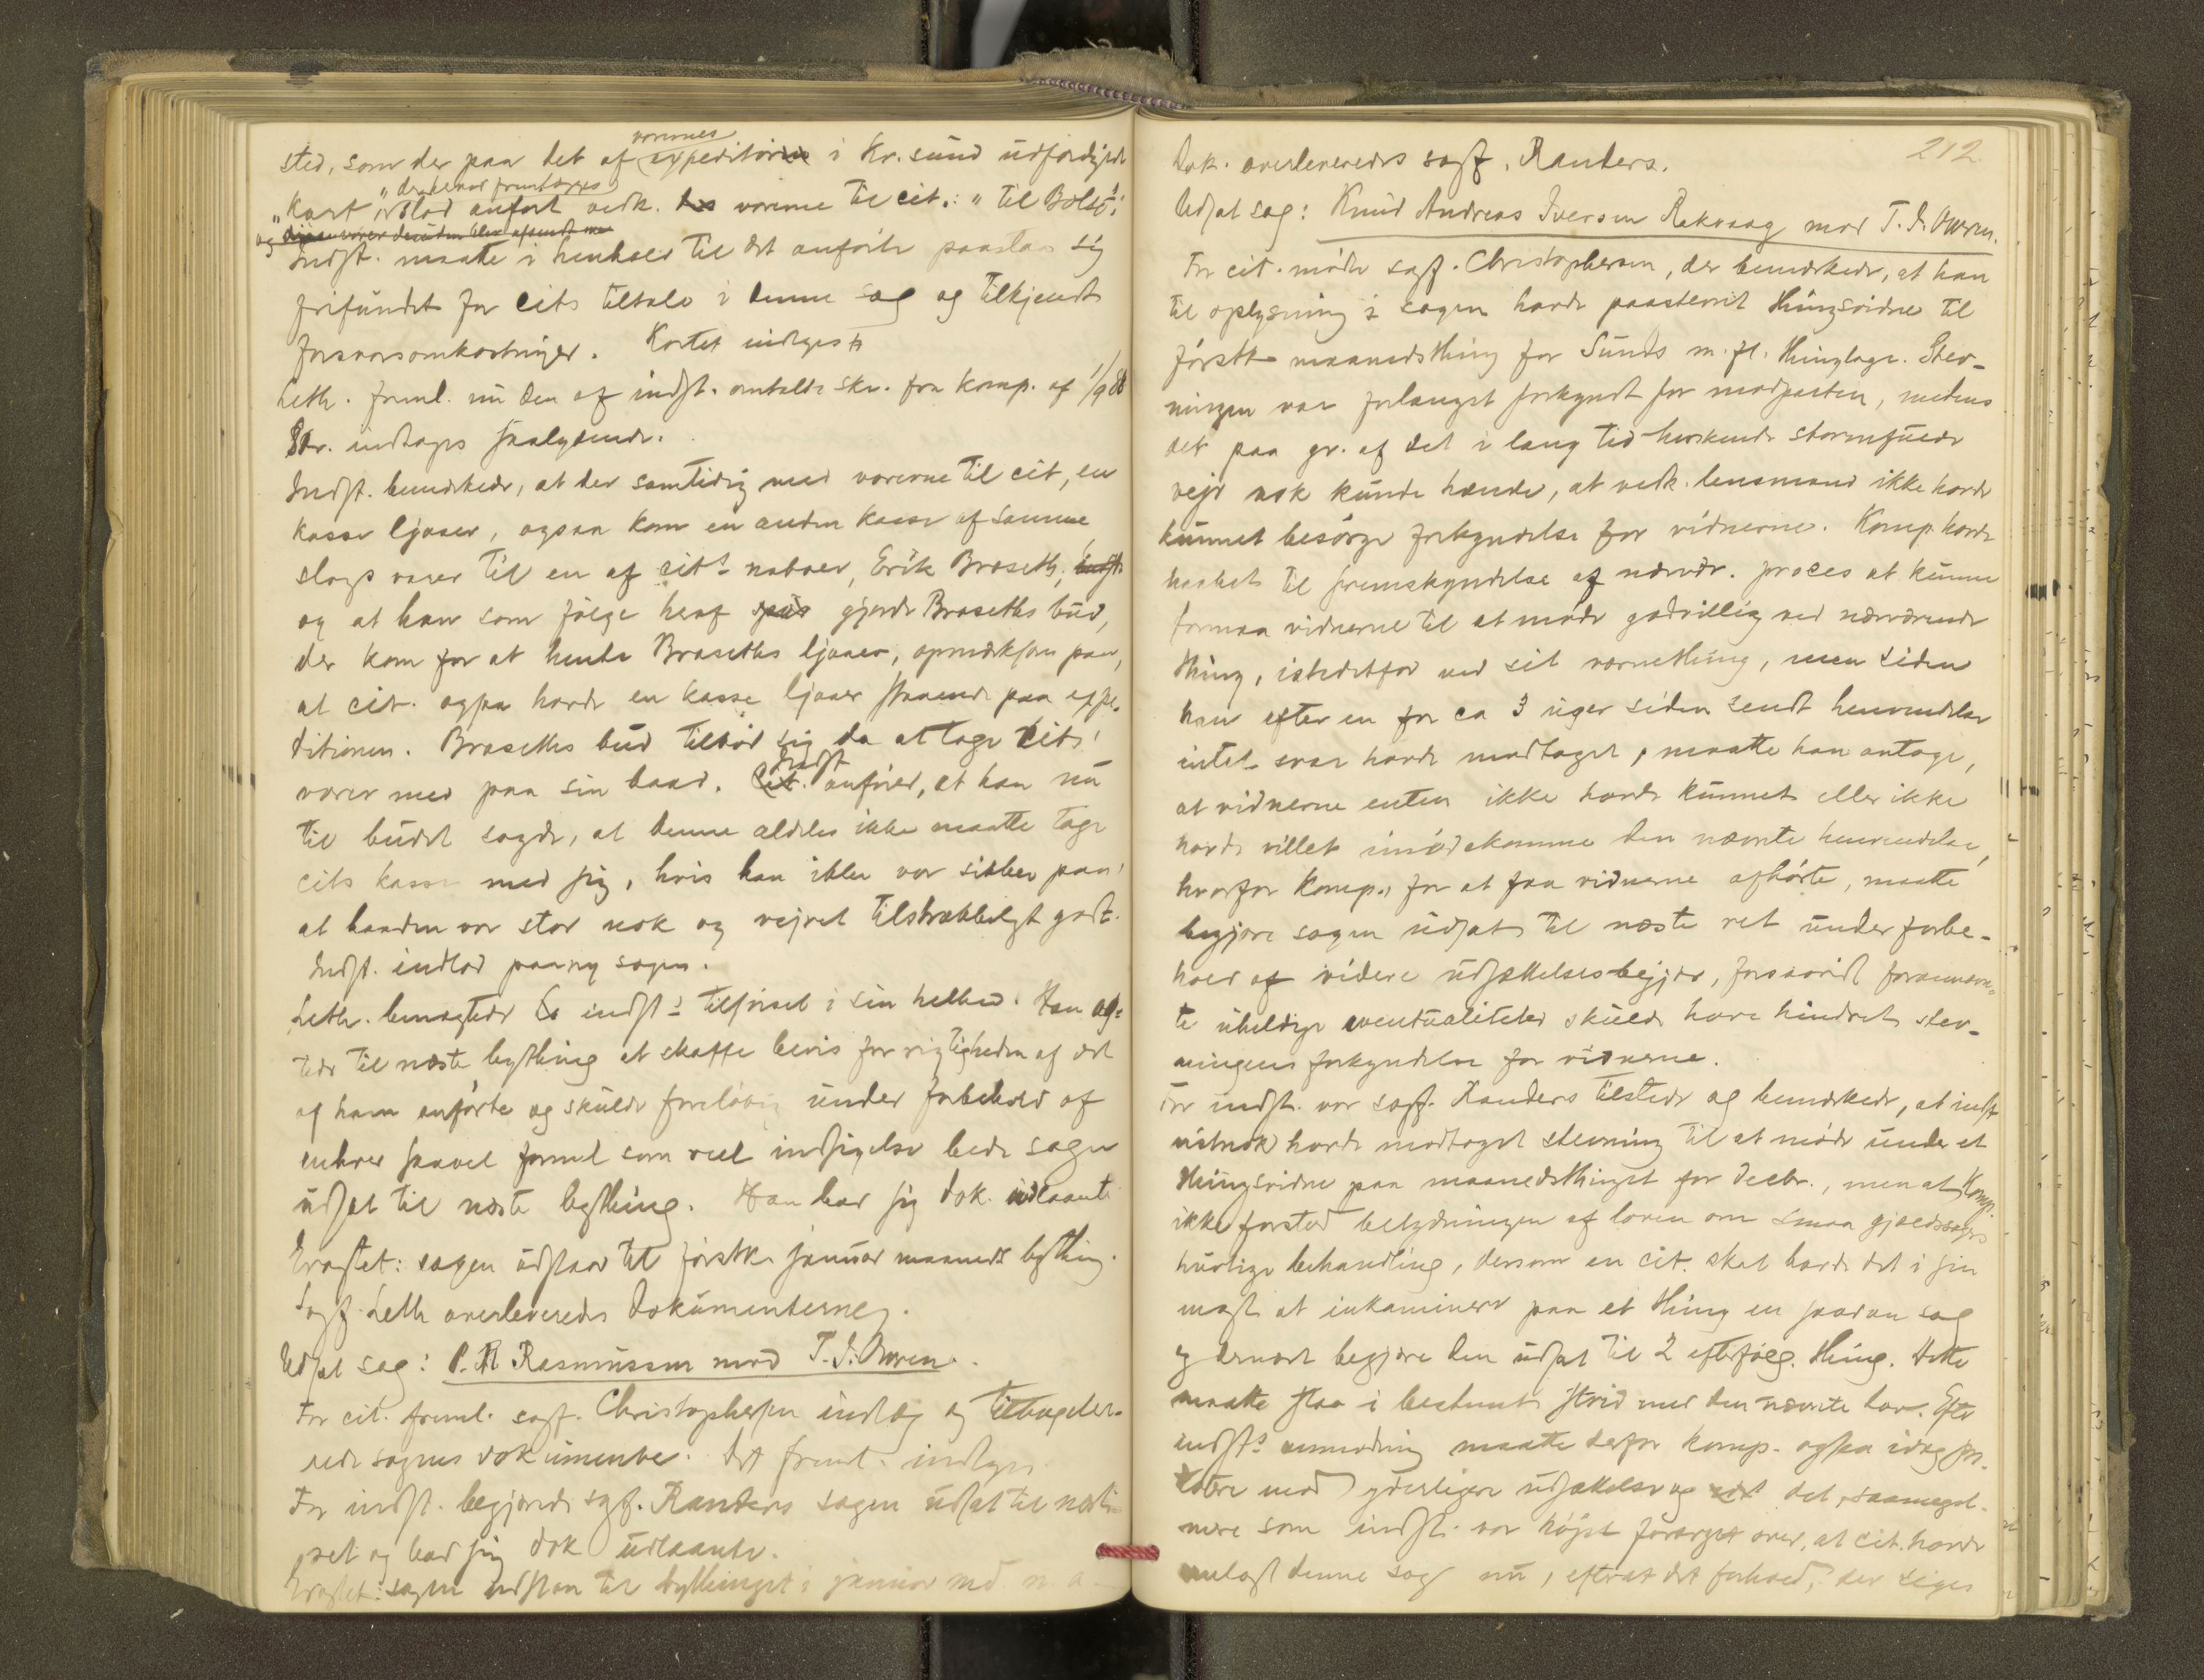 sted, som der paa det af varernes expeditör i Kr.sund udfærdigede
"Kart", der herved fremlægges, var anfört vedk. varerne til cit.: "til Bolsö";
og indst. maatte i henhold til det anförte paastaa sig
frifundet for cits tiltale i denne sag og tilkjendt
forsvarsomkostninger. Kortet indtages
Leth. freml. nu den af indst. omtalte skr. fra komp. af 1/9 88
Skr. indtages saalydende.
Indst. bemærkede, at der samtidig med varerne til cit, en
kasse ljaaer, ogsaa kom en anden kasse af samme
slags varer til en af cits naboer, Erik Braseth,
og at han som fölge heraf gjorde Braseths bud,
der kom for at hente Braseths ljaaer, opmærksom paa,
at cit. ogsaa havde en kasse ljaaer staaende paa expe-
ditionen. Braseths bud tilböd sig da at tage cits
varer med paa sin baad. Indst. anförer, at han nu
til budet sagde, at denne aldeles ikke maatte tage
cits kasse med sig, hvis han ikke var sikker paa,
at baaden var stor nok og vejret tilstrækkeligt godt.
Indst. indlod paany sagen.
Leth. benægtede indst:s tilförsel i sin helhed. Han ag-
tede til næste bything at skaffe bevis for rigtigheden af det
af ham anförte og skulde foreløbig under forbehold af
enhver saavel formel som reel indsigelse bede sagen
udsat til næste bything. Han bad sig dok. udlaante
Eragtet: sagen udstaar til förstk. januar maaneds bything.
Sagf. Leth overleveredes dokumenterne.
Udsat sag: P. R. Rasmussen mod T. J. Owren.
For cit. freml. sagf. Christophersen indlæg og tilbagelev-
rede sagens dokumenter. Det freml. indtages
For indst. begjærede sagf. Randers sagen udsat til næste
ret og bad sig dok udlaante.
Eragtet: sagen udstaar til bythinget i januar md. n. a.
212
Dok. overleveredes sagf. Randers.
Udsat sag: Knud Andreas Iversen Rakvaag mod T. J. Owren.
For cit. mödte sagf. Christophersen, der bemærkede, at han
til oplysning i sagen havde paastevnt thingsvidne til
förstk maanedsthing for Sunds m. fl. thinglage. Stev-
ningen var forlængst forkyndt for modparten, medens
det paa gr. af det i lang tid herskende stormfulde
vejr nok kunde hænde, at vedk. lensmand ikke havde
kunnet besörge forkyndelse for vidnerne. Komp. havde
haabet til fremskyndelse af nærvær. proces at kunne
formaa vidnerne til at möde godvillig ved nærværende
thing, istedetfor ved sit værnething, men siden
han efter en for ca 3 uger siden sendt henvendelse
intet svar havde modtaget, maatte han antage,
at vidnerne enten ikke havde kunnet eller ikke
havde villet imödekomme den nævnte henvendelse,
hvorfor komp., for at faa vidnerne afhörte, maatte
begjære sagen udsat til næste ret under forbe-
hold af videre udsættelsesbegjær, forsaavidt forannævn-
te uheldige eventualiteter skulde have hindret stev-
ningens forkyndelse for vidnerne.
For indst. var sagf. Randers tilstede og bemærkede, at indst
vistnok havde modtaget stevning til at möde under et
thingsvidne paa maanedsthinget for Decbr., men at komp.
ikke forstod betydningen af loven om smaa gjældssagers
hurtige behandling, dersom en cit. skal havde det i sin
magt at inkaminere paa et thing en saadan sag
og dernæst begjære den udsat til 2 efterfölg. thing. Dette
maatte staa i bestemt strid med den nævnte lov. Efter
indsts anmodning maatte derfor komp. ogsaa idag pro-
testere mod yderligere udsættelse og det, saameget
mere som indst. var höjst forarget over, at cit. havde
anlagt denne sag nu, efterat det forhold, der siges